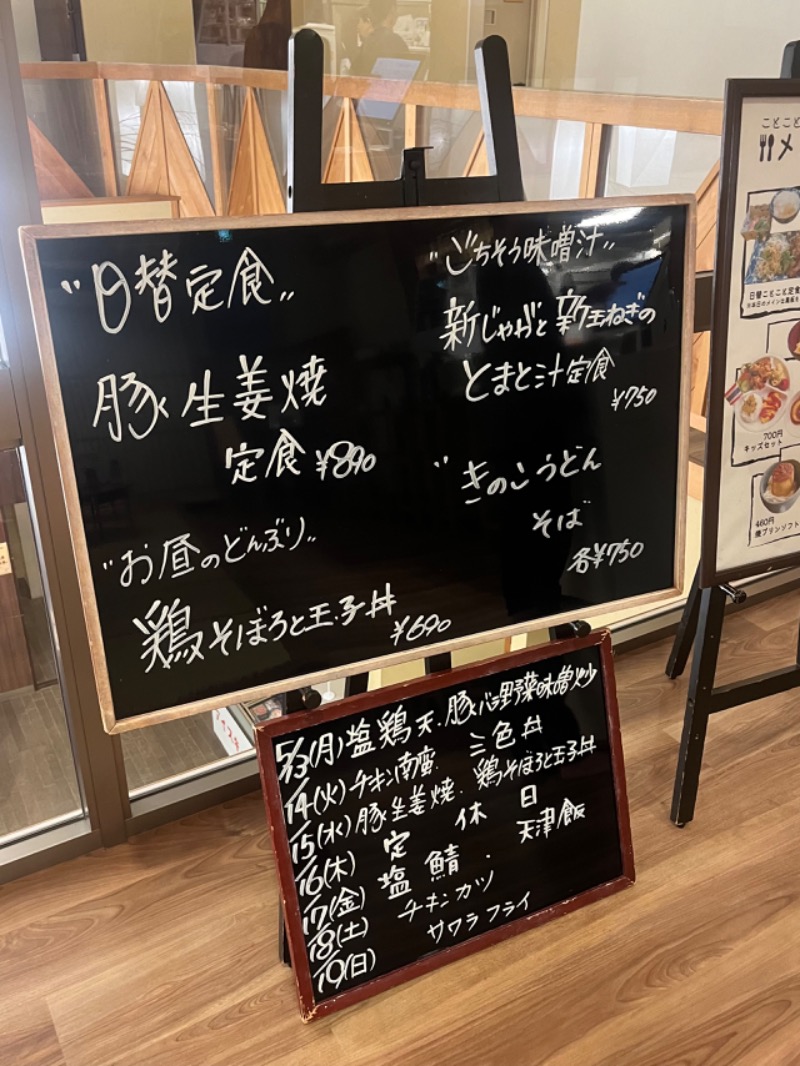 "日替定食"
豚生姜焼
定食 ¥890
"お昼のどんぶり"
鶏そぼろと玉子丼
¥690
"ごちそう味噌汁"
新じゃがと新玉ねぎの
とまと汁定食
¥750
"きのこうどん
そば
各¥750
5/13(月)塩鶏天・豚バラ野菜味噌炒
14(火)チキン南蛮・三色丼
15(水)豚生姜焼・鶏そぼろと玉子丼
16(木)定休日
17(金)塩鯖・天津飯
18(土)チキンカツ
19(日)サワラフライ
ことこと
メ
日替ことこと定食
700円
キッズセット
460円
焼プリンソフト